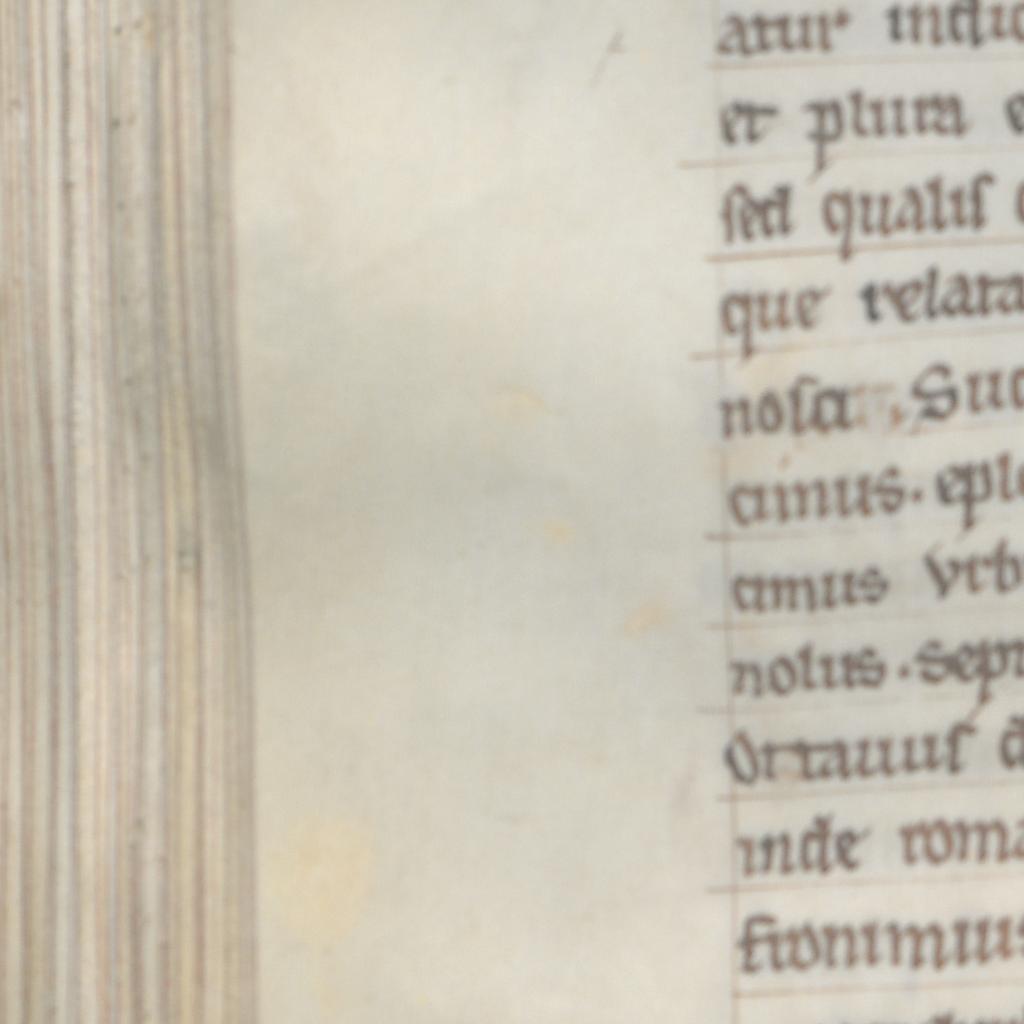 atur indic
et plura e
sed qualis
que relata
nosa Suc
cimus. eplo
cimus vrb
nolus. sept
Octauus d
inde roma
fronimius